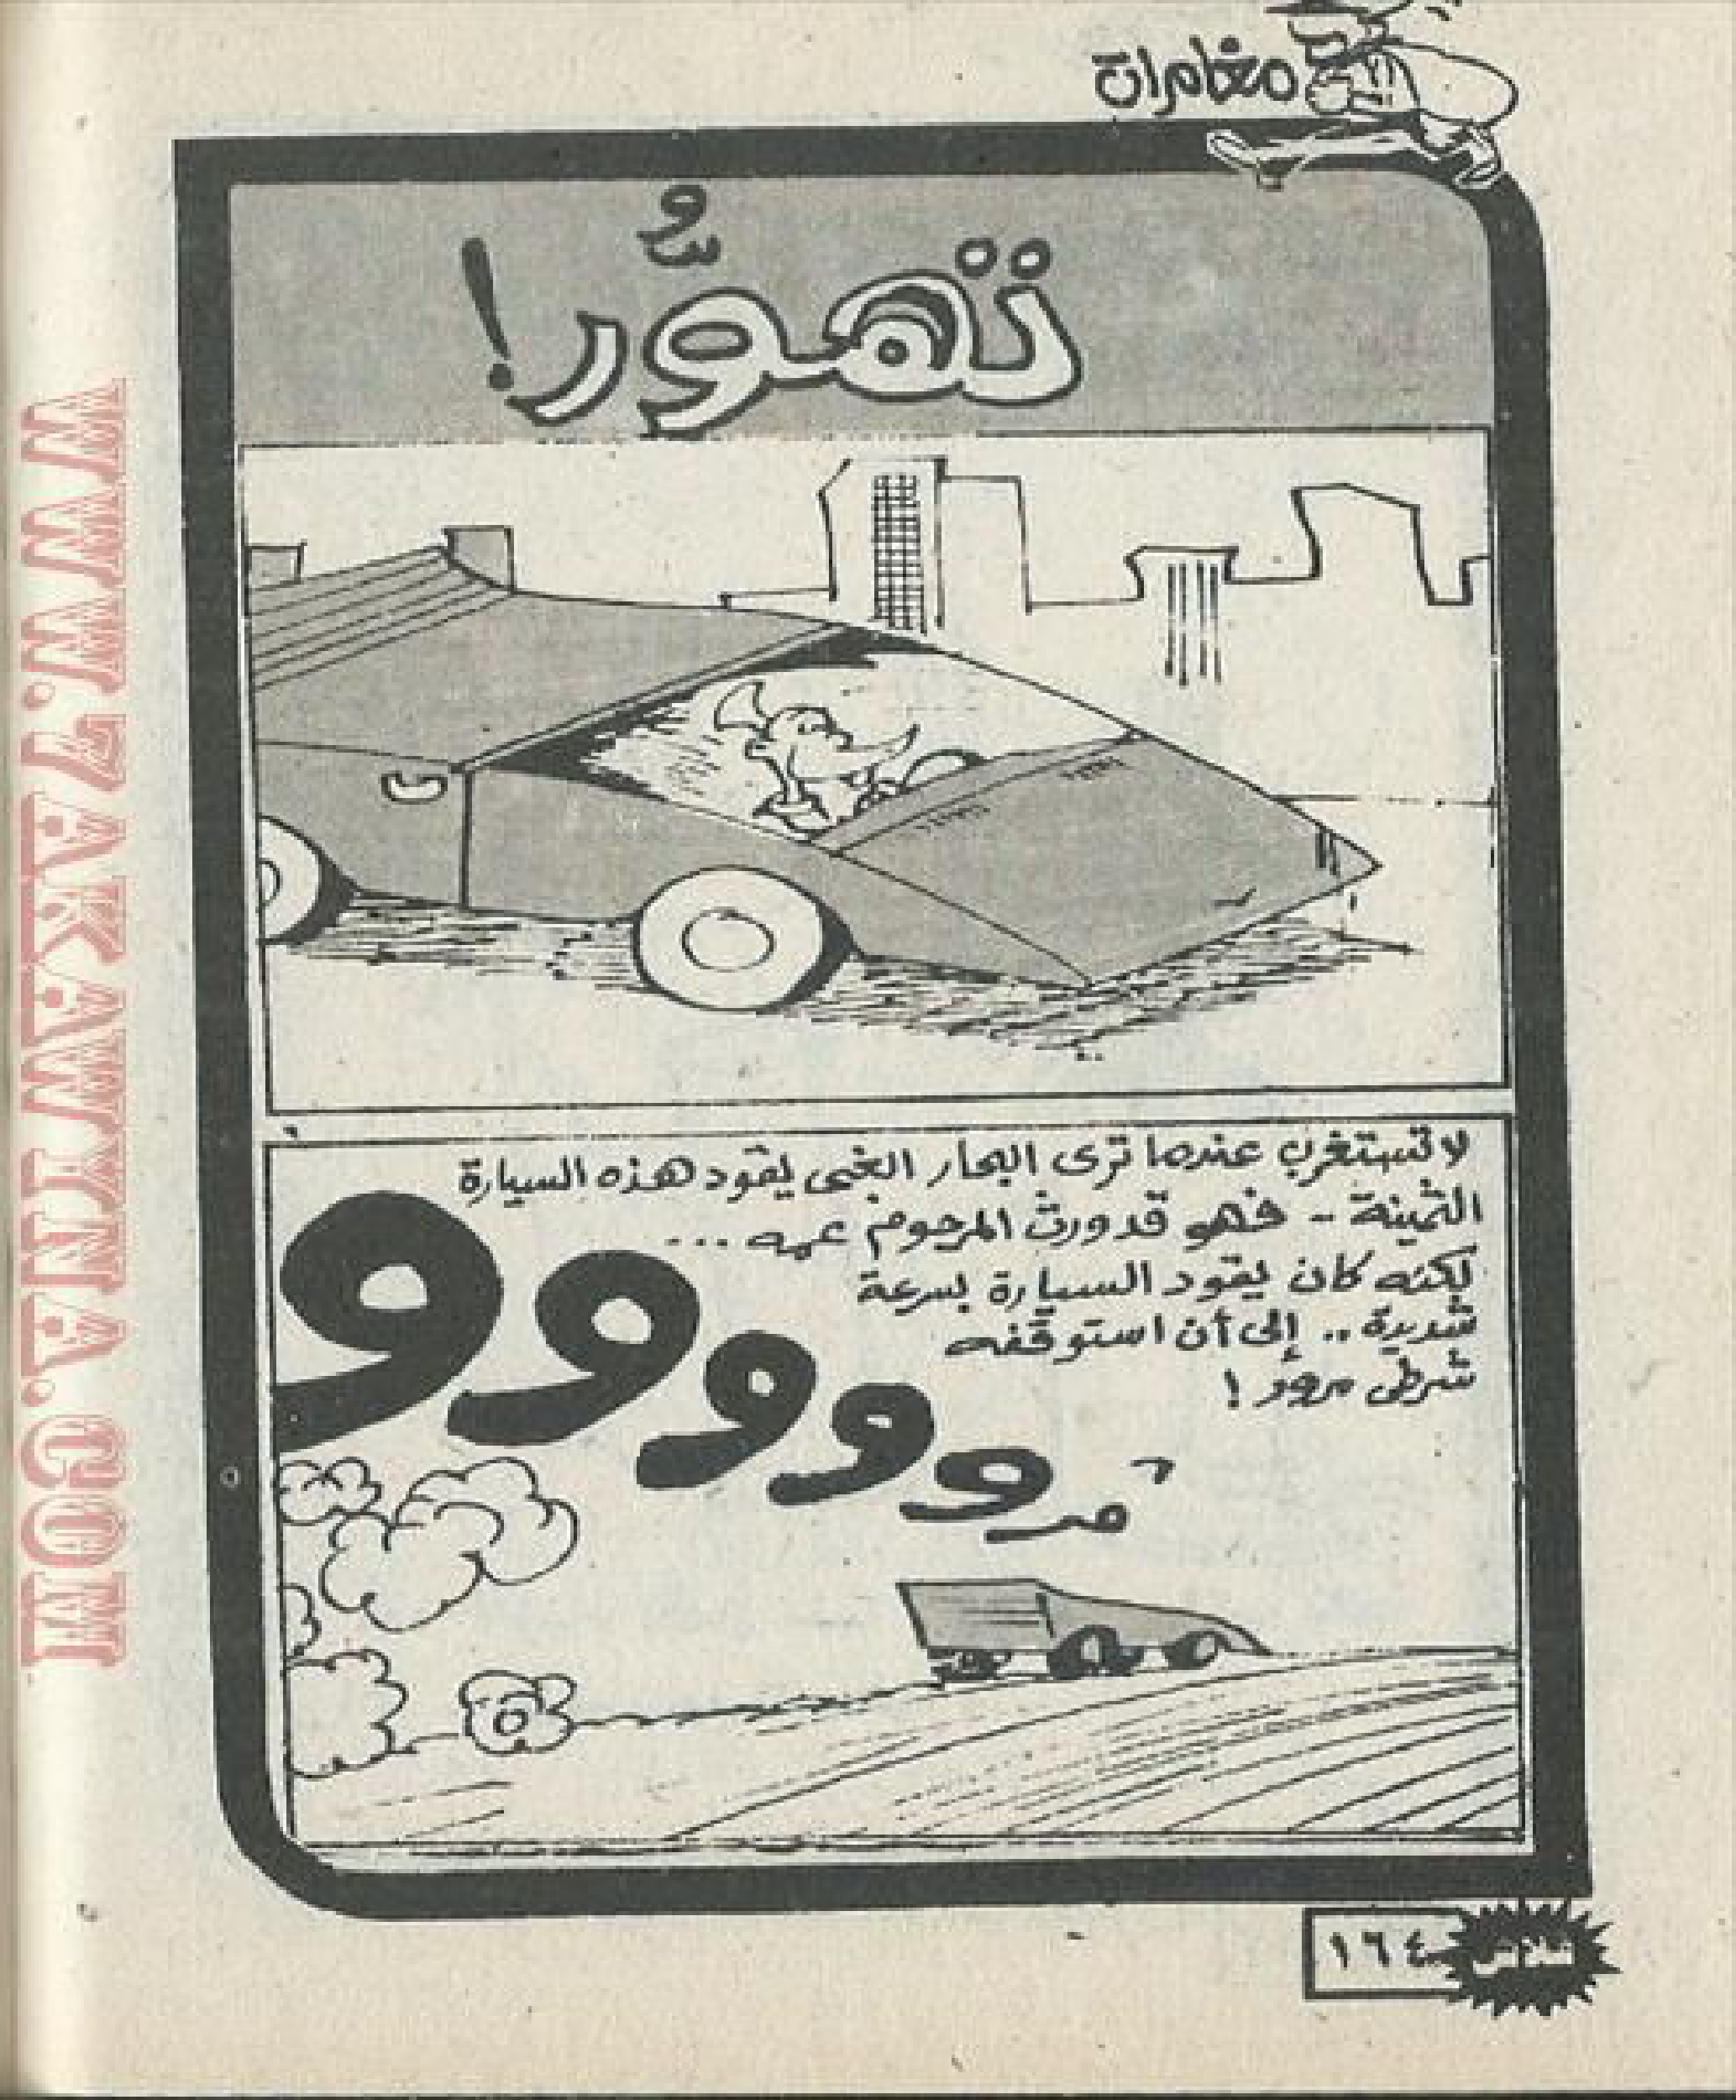 مغامرات
تهوُّر!
لا تستغرب عندما ترى البحار الغبى يقود هذه السيارة
الثمينة - فهو قد ورث المرحوم عمه ...
لكنه كان يقود السيارة بسرعة
شديدة .. إلى أن استوقفه
شرطى مرور !
فلاش
١٦٤
WWW.7AKAWTNA.COM